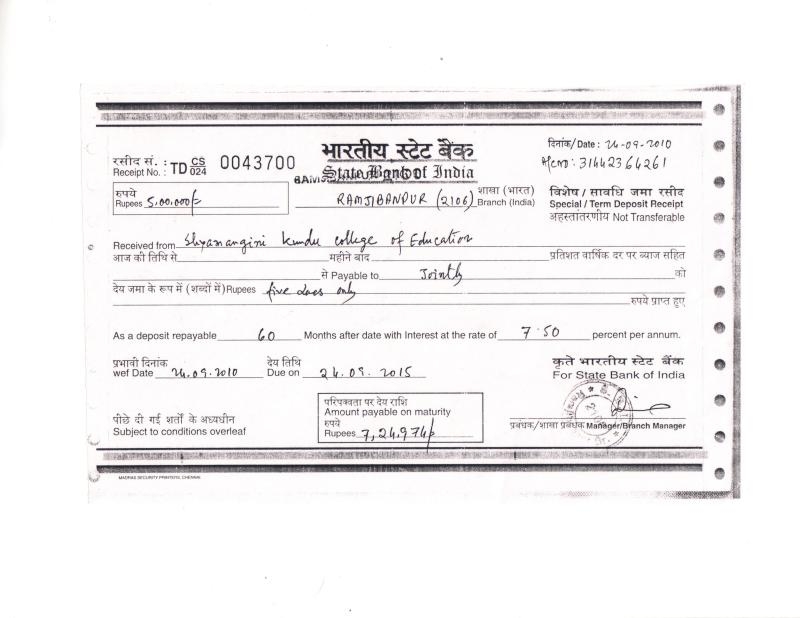 रसीद सं. :
Receipt No. : TD CS 024 0043700
भारतीय स्टेट बैंक
State Bank of India
दिनांक/Date : 24-09-2010
A/c no : 31442364261
रुपये
Rupees 5,00,000/-
RAMJIBANPUR (2106)
शाखा (भारत)
Branch (India)
विशेष / सावधि जमा रसीद
Special / Term Deposit Receipt
अहस्तांतरणीय Not Transferable
Received from Shyamangini Kundu College of Education
आज की तिथि से महीने बाद प्रतिशत वार्षिक दर पर ब्याज सहित
से Payable to Jointly को
देय जमा के रूप में (शब्दों में) Rupees five lacs only
रुपये प्राप्त हुए
As a deposit repayable 60 Months after date with Interest at the rate of 7.50 percent per annum.
प्रभावी दिनांक
wef Date 24.09.2010
देय तिथि
Due on 24.09.2015
कृते भारतीय स्टेट बैंक
For State Bank of India
पीछे दी गई शर्तों के अध्यधीन
Subject to conditions overleaf
परिपक्वता पर देय राशि
Amount payable on maturity
रुपये
Rupees 7,24,974/-
प्रबंधक/शाखा प्रबंधक Manager/Branch Manager
MADRAS SECURITY PRINTERS, CHENNAI